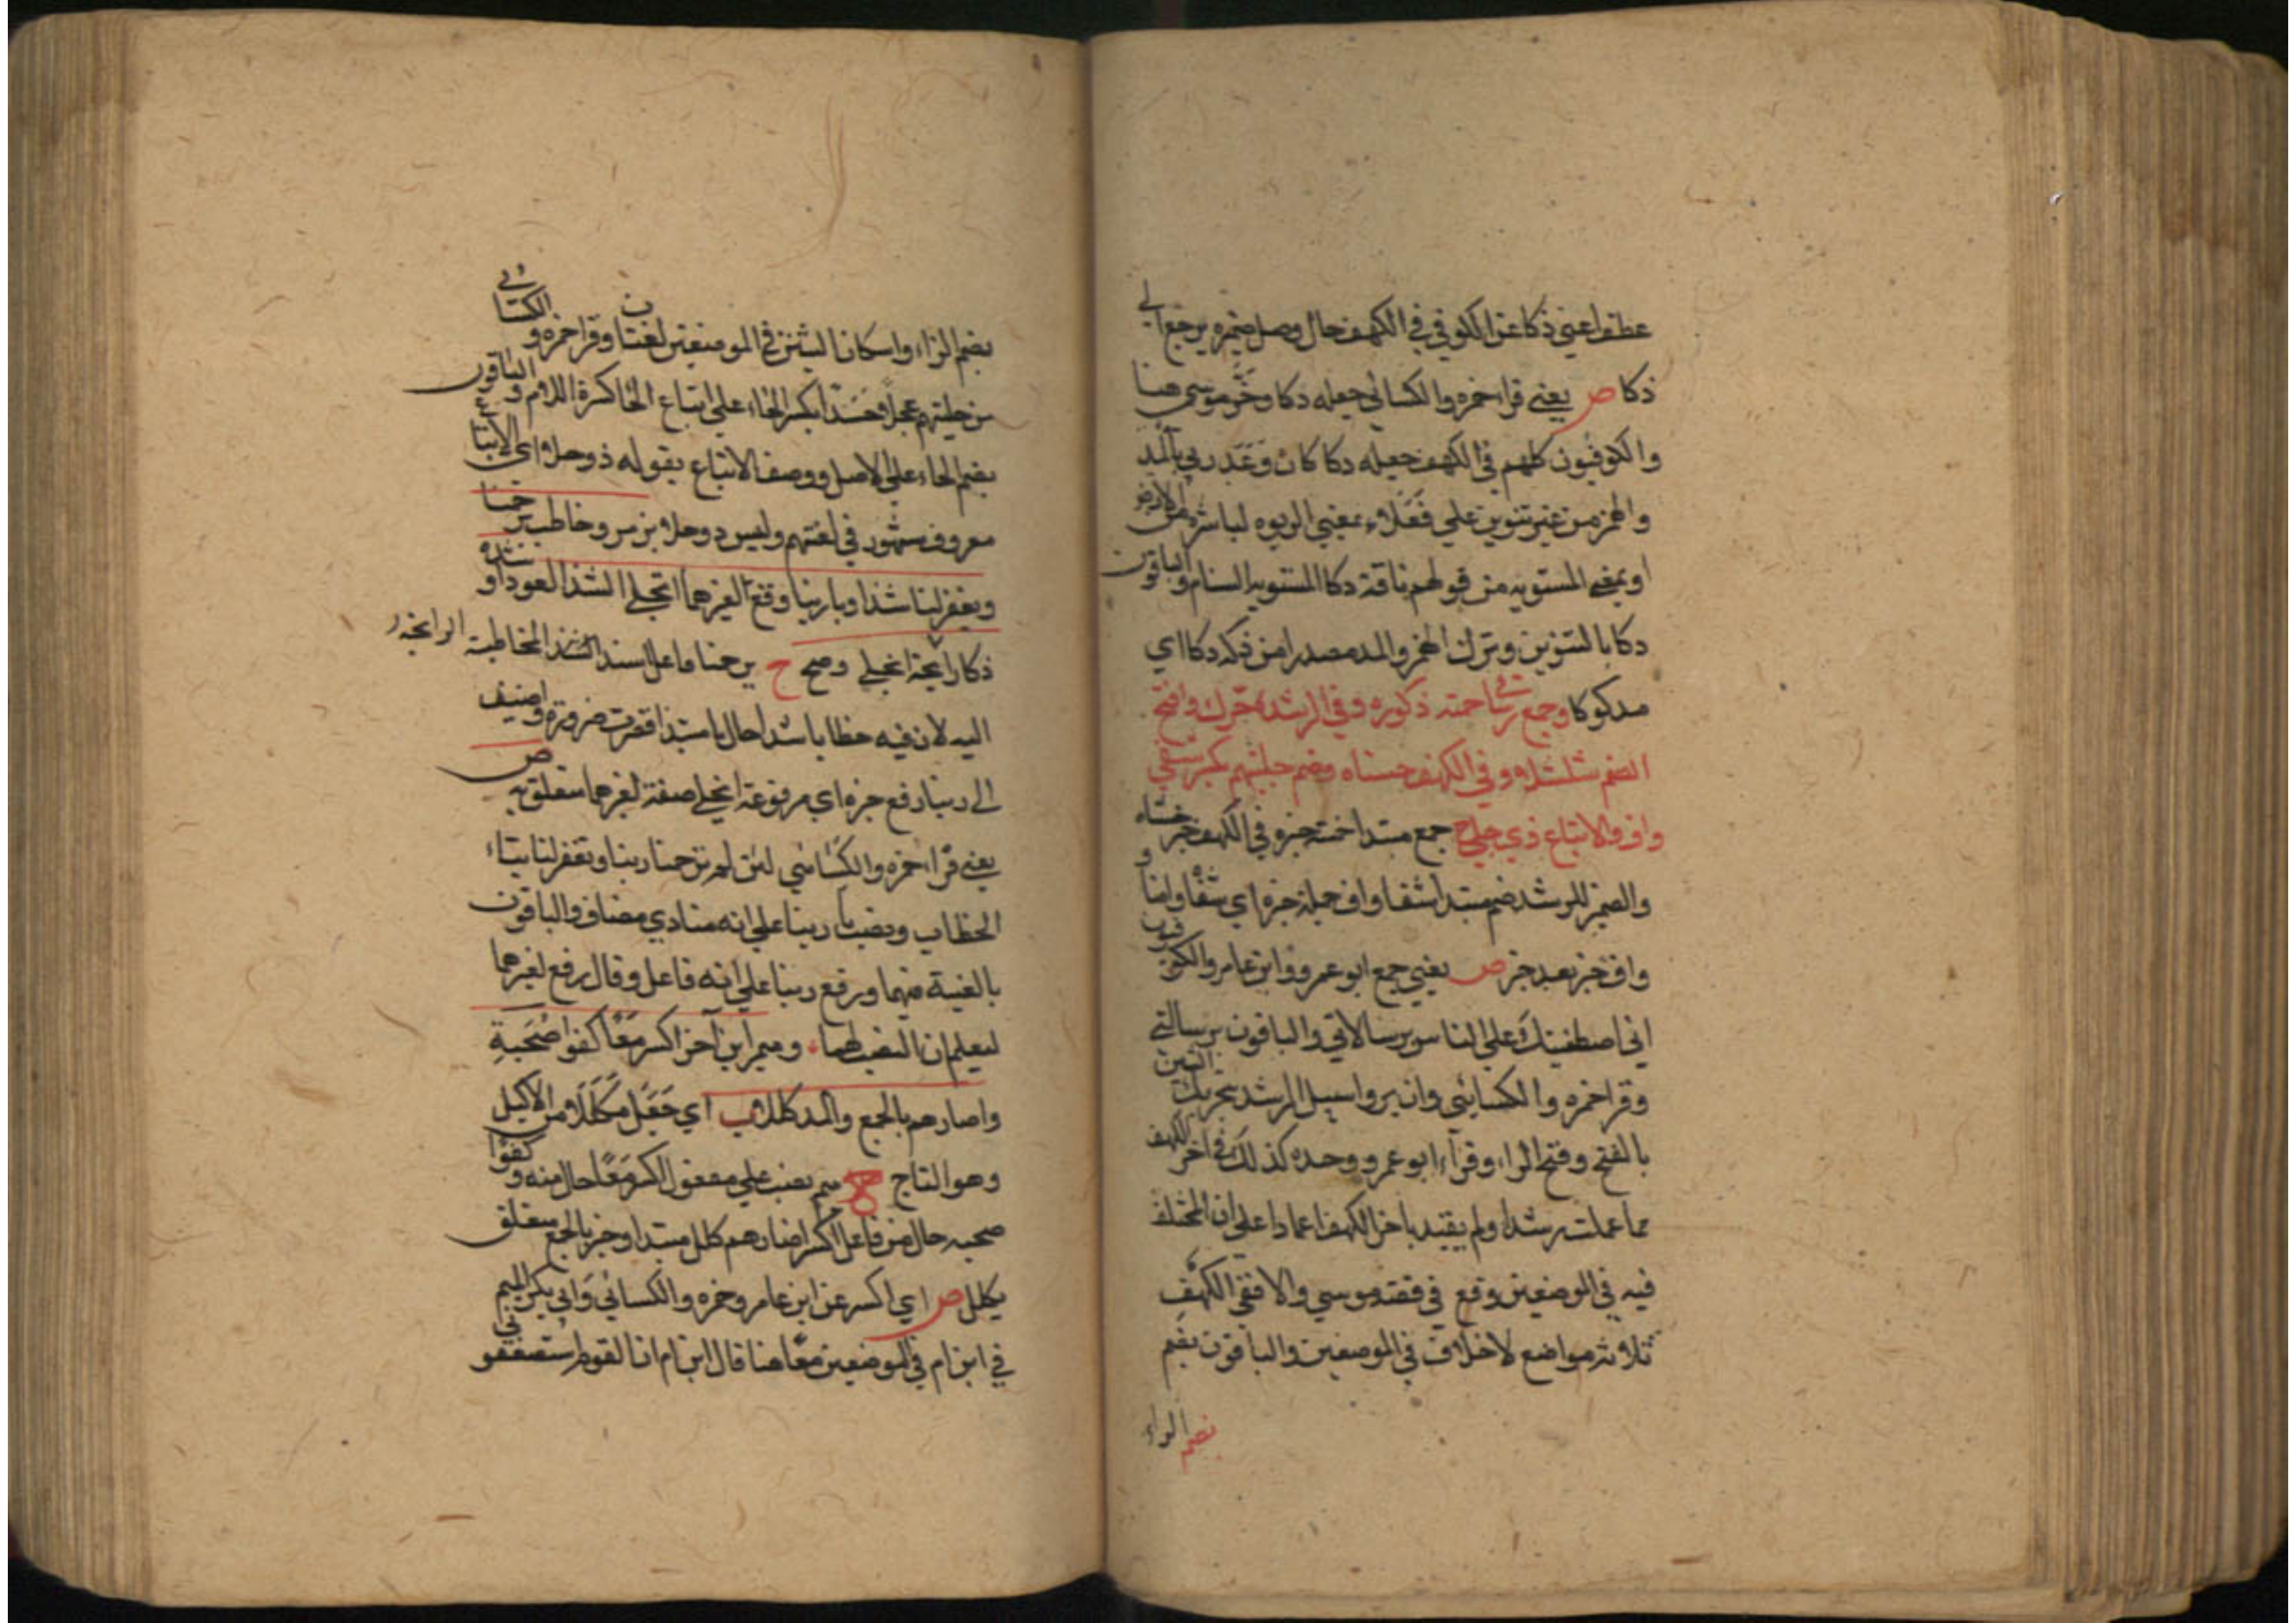 عطفوا عيني ذكا عن الكوفي في الكهف حال وصل ضميره يرجع الي
ذكا ص يعني قراء حمزه والكسائي جعله دكا وخر موسي هنا
والكوفيون كلهم في الكهف جعله دكا كان وعد ربي بالمد
والهمز من غير تنوين علي فعلاء بمعني الربوه لناشزه من الارض
او بمعني المستويه من قولهم ناقة دكا المستويه السنام والباقون
دكا بالتنوين وترك الهمز والمد مصدرا من دكه دكا اي
مدكوكا وجمع رسالاتي حمته ذكوره وفي الرشد حرك وافتح
الضم شلشلا وفي الكهف حسناه وضم حليهم بكسر شفي
واف والاتباع ذي حلي ح جمع مبتدا حمته خبره في الكهف خبر حسناه
والضمير للرشد ضم مبتدا شفا واف جملة خبره اي شفا وامنا و
واف خبر بعد خبر ص يعني جمع ابو عمرو وابن عامر والكوفيون
اني اصطفيتك علي الناس برسالاتي والباقون برسالتي
وقرا حمزه والكسائي وان يروا سبيل الرشد بتحريك الشين
بالفتح وفتح الراء وقراء ابو عمرو وحده كذلك في اخر الكهف
مما علمت رشدا ولم يقيد باخر الكهف اعمادا علي ان المختلف
فيه في الموضعين وقع في قصة موسي والا ففي الكهف
ثلاثة مواضع لا خلاف في الموضعين والباقون بضم
بضم الراء
بضم الراء واسكان الشين في الموضعين لغتان وقرا حمزه والكسائي
من حليهم عجلا جسدا بكسر الحاء علي اتباع الحا كسرة اللام والباقون
بضم الحاء علي الاصل ووصف الاتباع بقوله ذو حلا اي الاتباع
معروف مشهور في لغتهم وليس ذو حلا برمز وخاطب يرحمنا
ويغفر لنا شذا وبا ربنا وقع لغيرهما انجلي الشذا العود او شدة
ذكا رايحة انجلي وضح ح يرحمنا فاعل اسند الشذ المخاطبة الرايحة
اليه لان فيه خطابا شذا حال يا مبتدا قصرت ضرورة واضيف
الي ربنا رفع خبره اي مرفوعة انجلي صفة لغيرهما متعلق به ص
يعني قراء حمزه والكسائي لئن لم ترحمنا ربنا وتغفر لنا بتاء
الخطاب ونصب با ربنا علي انه منادي مضاف والباقون
بالغيبة فيهما ورفع ربنا علي انه فاعل وقال رفع لغيرهما
ليعلم ان النصب لهما وميم ابن ام اكسر معا كفوا صحبة
واصارهم بالجمع والمد كللا ب اي جعل مكللا من الاكليل
وهو التاج ح ميم نصب علي مفعول اكسر معا حال منه وكفوا
صحبه حال من فاعل اكسر اصارهم كلل مبتدا وخبر بالجمع متعلق
بكلل ص اي اكسر عن ابن عامر وحمزه والكسائي وابي بكر الميم
في ابن ام في الموضعين معا هنا قال ابن ام ان القوم استضعفوني